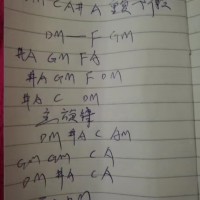 CA#A
DM — F GM
#A GM F A
#A GM F DM
#A C DM
主旋律
DM #A C AM
GM GM C A
DM #A C A